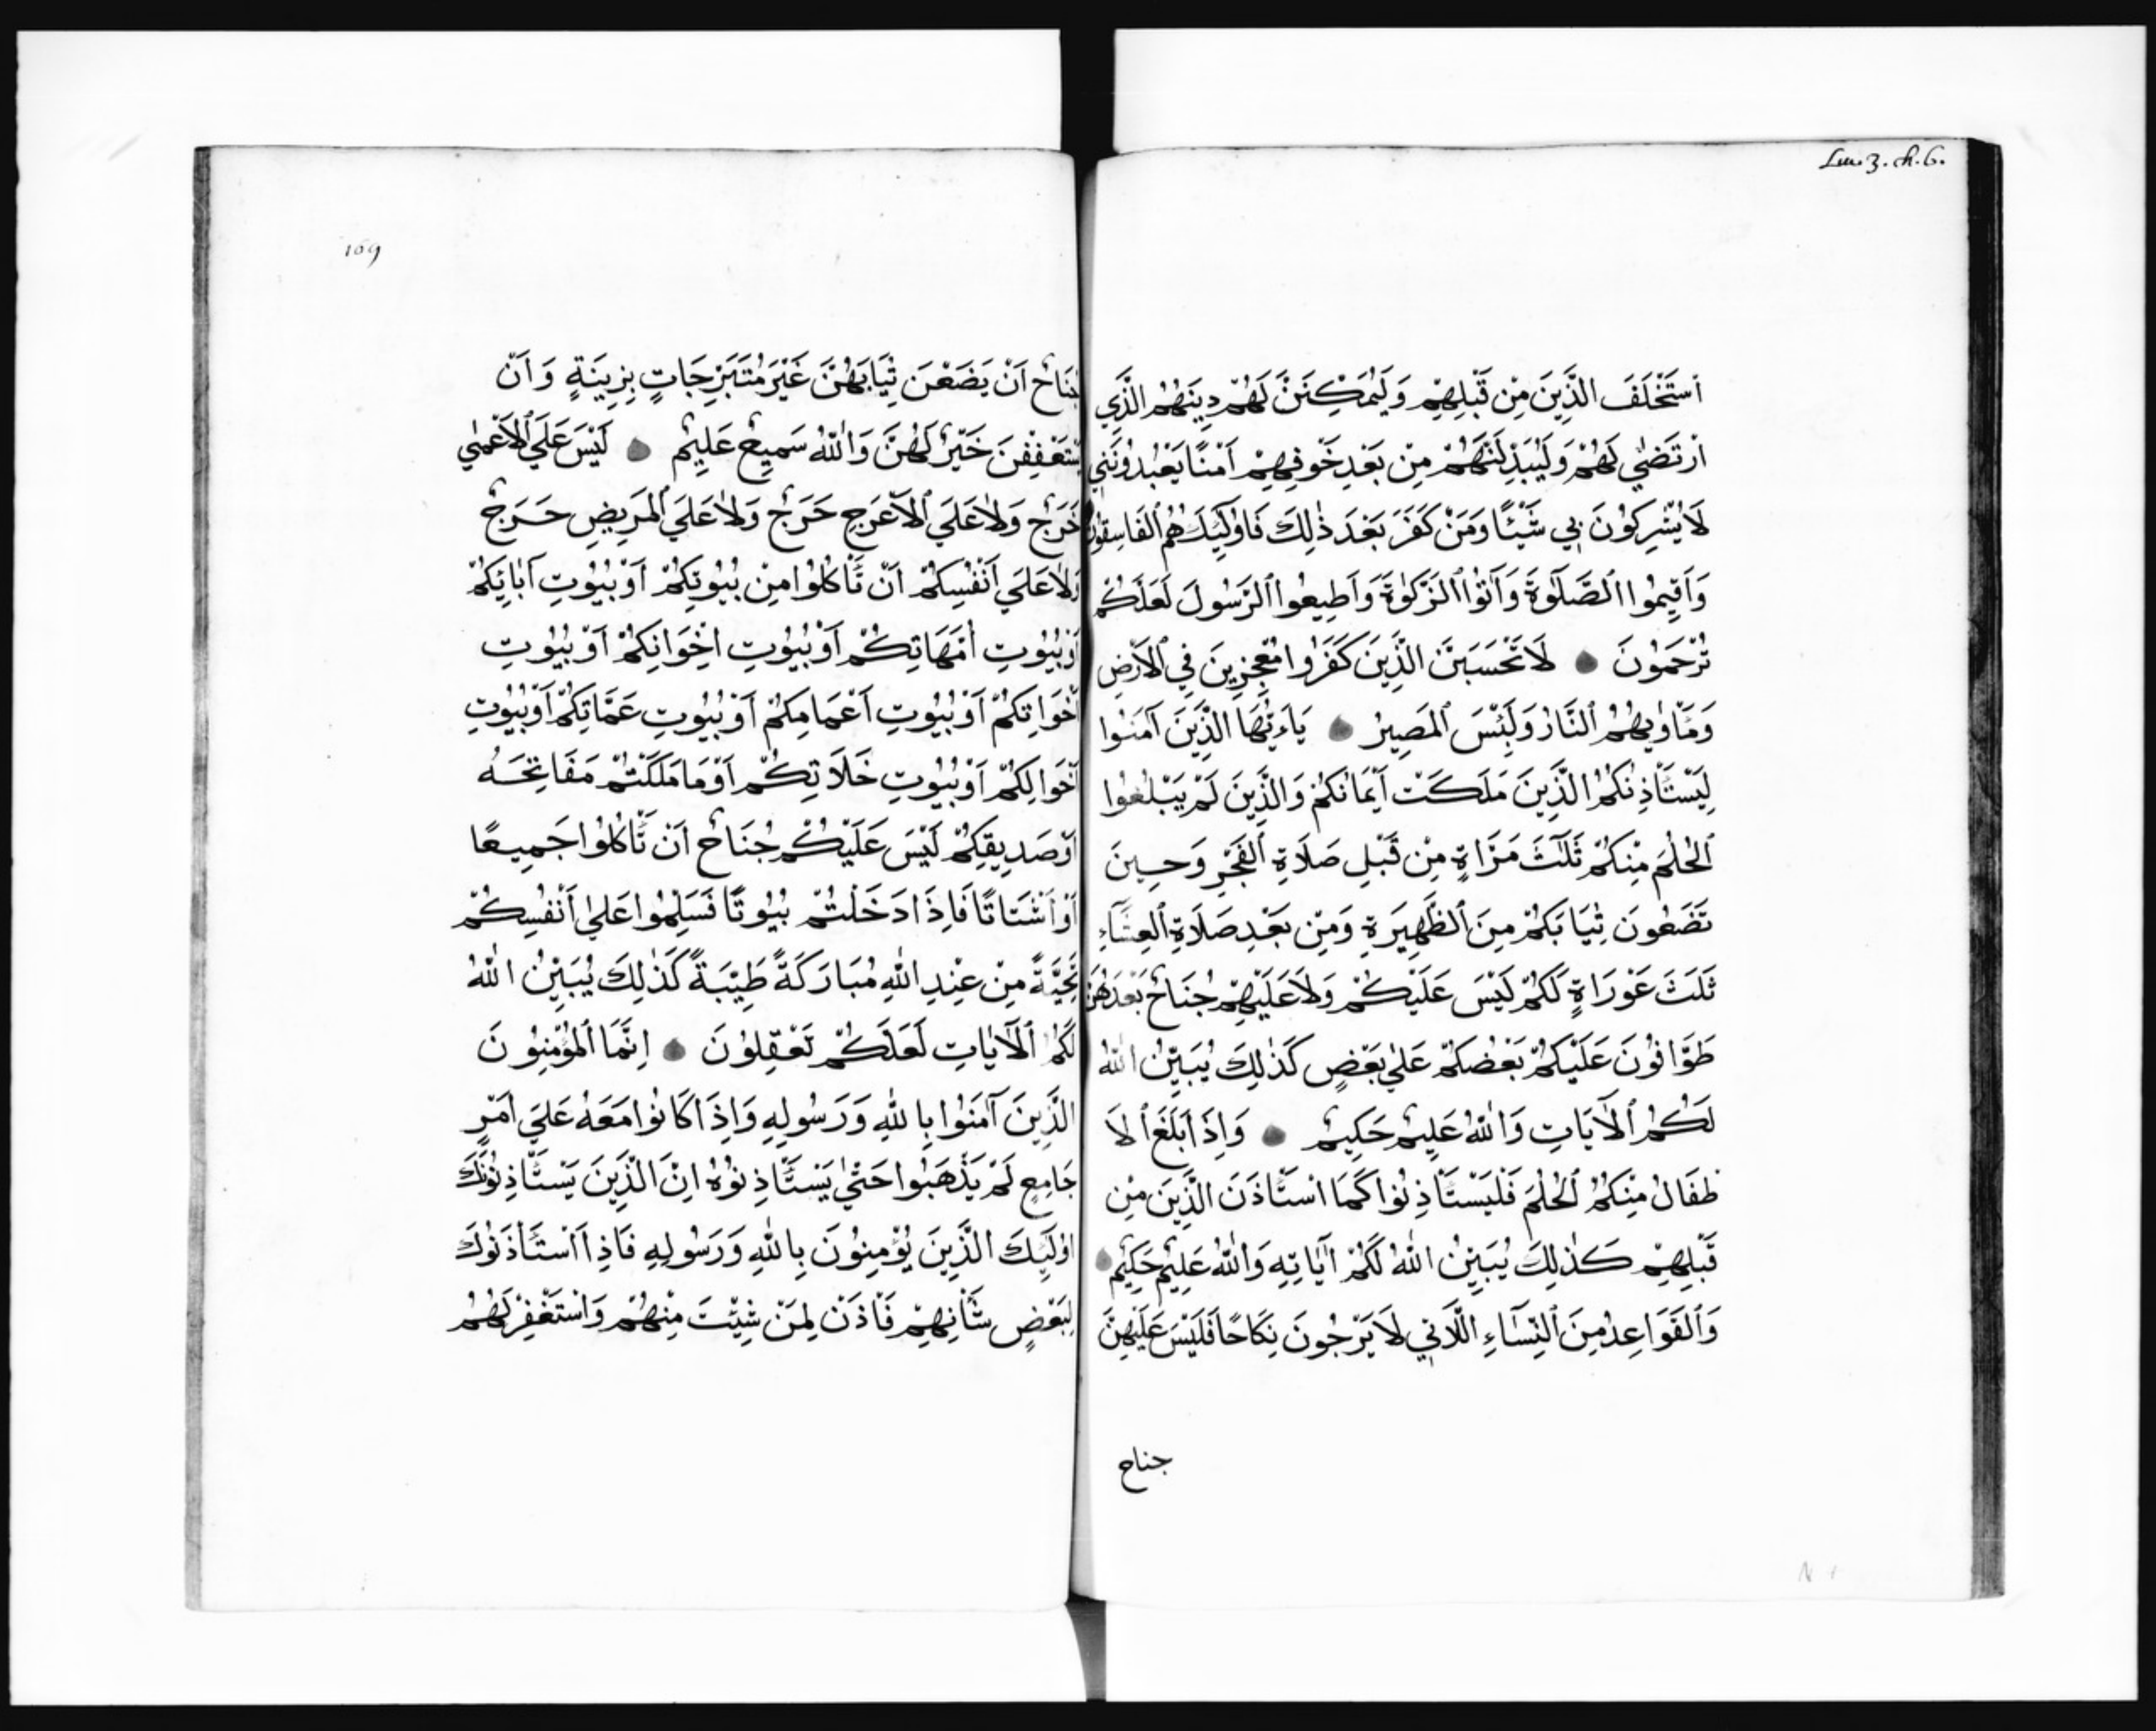 Lui. 3. ch. 6.
اَسْتَخْلَفَ الَّذِينَ مِنْ قَبْلِهِمْ وَلَيُمَكِّنَنَّ لَهُمْ دِينَهُمُ الَّذِي
ارْتَضٰي لَهُمْ وَلَيُبَدِّلَنَّهُمْ مِنْ بَعْدِ خَوْفِهِمْ اَمْنًا يَعْبُدُونَنِي
لَا يُشْرِكُونَ بِي شَيْئًا وَمَنْ كَفَرَ بَعْدَ ذٰلِكَ فَاُولٰئِكَ هُمُ الْفَاسِقُونَ
وَاَقِيمُوا الصَّلٰوةَ وَآتُوا الزَّكٰوةَ وَاَطِيعُوا الرَّسُولَ لَعَلَّكُمْ
تُرْحَمُونَ ● لَا تَحْسَبَنَّ الَّذِينَ كَفَرُوا مُعْجِزِينَ فِي الْاَرْضِ
وَمَأْوٰيهُمُ النَّارُ وَلَبِئْسَ الْمَصِيرُ ● يَاءَيُّهَا الَّذِينَ آمَنُوا
لِيَسْتَأْذِنْكُمُ الَّذِينَ مَلَكَتْ اَيْمَانُكُمْ وَالَّذِينَ لَمْ يَبْلُغُوا
الْحُلُمَ مِنْكُمْ ثَلٰثَ مَرَّاةٍ مِنْ قَبْلِ صَلَاةِ الْفَجْرِ وَحِينَ
تَضَعُونَ ثِيَابَكُمْ مِنَ الظَّهِيرَةِ وَمِنْ بَعْدِ صَلَاةِ الْعِشَاءِ
ثَلٰثَ عَوْرَاةٍ لَكُمْ لَيْسَ عَلَيْكُمْ وَلَا عَلَيْهِمْ جُنَاحٌ بَعْدَهُنَّ
طَوَّافُونَ عَلَيْكُمْ بَعْضُكُمْ عَلٰي بَعْضٍ كَذٰلِكَ يُبَيِّنُ اللّٰهُ
لَكُمُ الْآيَاتِ وَاللّٰهُ عَلِيمٌ حَكِيمٌ ● وَاِذَا بَلَغَ الْاَ
طْفَالُ مِنْكُمُ الْحُلُمَ فَلْيَسْتَأْذِنُوا كَمَا اسْتَأْذَنَ الَّذِينَ مِنْ
قَبْلِهِمْ كَذٰلِكَ يُبَيِّنُ اللّٰهُ لَكُمْ آيَاتِهِ وَاللّٰهُ عَلِيمٌ حَكِيمٌ ●
وَالْقَوَاعِدُ مِنَ النِّسَاءِ اللَّاتِي لَا يَرْجُونَ نِكَاحًا فَلَيْسَ عَلَيْهِنَّ
جناح
169
جُنَاحٌ اَنْ يَضَعْنَ ثِيَابَهُنَّ غَيْرَ مُتَبَرِّجَاتٍ بِزِينَةٍ وَاَنْ
يَسْتَعْفِفْنَ خَيْرٌ لَهُنَّ وَاللّٰهُ سَمِيعٌ عَلِيمٌ ● لَيْسَ عَلَي الْاَعْمٰي
حَرَجٌ وَلَا عَلَي الْاَعْرَجِ حَرَجٌ وَلَا عَلَي الْمَرِيضِ حَرَجٌ
وَلَا عَلَي اَنْفُسِكُمْ اَنْ تَأْكُلُوا مِنْ بُيُوتِكُمْ اَوْ بُيُوتِ آبَائِكُمْ
اَوْ بُيُوتِ اُمَّهَاتِكُمْ اَوْ بُيُوتِ اِخْوَانِكُمْ اَوْ بُيُوتِ
اَخْوَاتِكُمْ اَوْ بُيُوتِ اَعْمَامِكُمْ اَوْ بُيُوتِ عَمَّاتِكُمْ اَوْ بُيُوتِ
اَخْوَالِكُمْ اَوْ بُيُوتِ خَلَاتِكُمْ اَوْ مَا مَلَكْتُمْ مَفَاتِحَهُ
اَوْ صَدِيقِكُمْ لَيْسَ عَلَيْكُمْ جُنَاحٌ اَنْ تَأْكُلُوا جَمِيعًا
اَوْ اَشْتَاتًا فَاِذَا دَخَلْتُمْ بُيُوتًا فَسَلِّمُوا عَلٰي اَنْفُسِكُمْ
تَحِيَّةً مِنْ عِنْدِ اللّٰهِ مُبَارَكَةً طَيِّبَةً كَذٰلِكَ يُبَيِّنُ اللّٰهُ
لَكُمُ الْآيَاتِ لَعَلَّكُمْ تَعْقِلُونَ ● اِنَّمَا الْمُؤْمِنُونَ
الَّذِينَ آمَنُوا بِاللّٰهِ وَرَسُولِهِ وَاِذَا كَانُوا مَعَهُ عَلَي اَمْرٍ
جَامِعٍ لَمْ يَذْهَبُوا حَتّٰي يَسْتَأْذِنُوهُ اِنَّ الَّذِينَ يَسْتَأْذِنُونَكَ
اُولٰئِكَ الَّذِينَ يُؤْمِنُونَ بِاللّٰهِ وَرَسُولِهِ فَاِذَا اسْتَأْذَنُوكَ
لِبَعْضِ شَأْنِهِمْ فَاْذَنْ لِمَنْ شِئْتَ مِنْهُمْ وَاسْتَغْفِرْ لَهُمُ